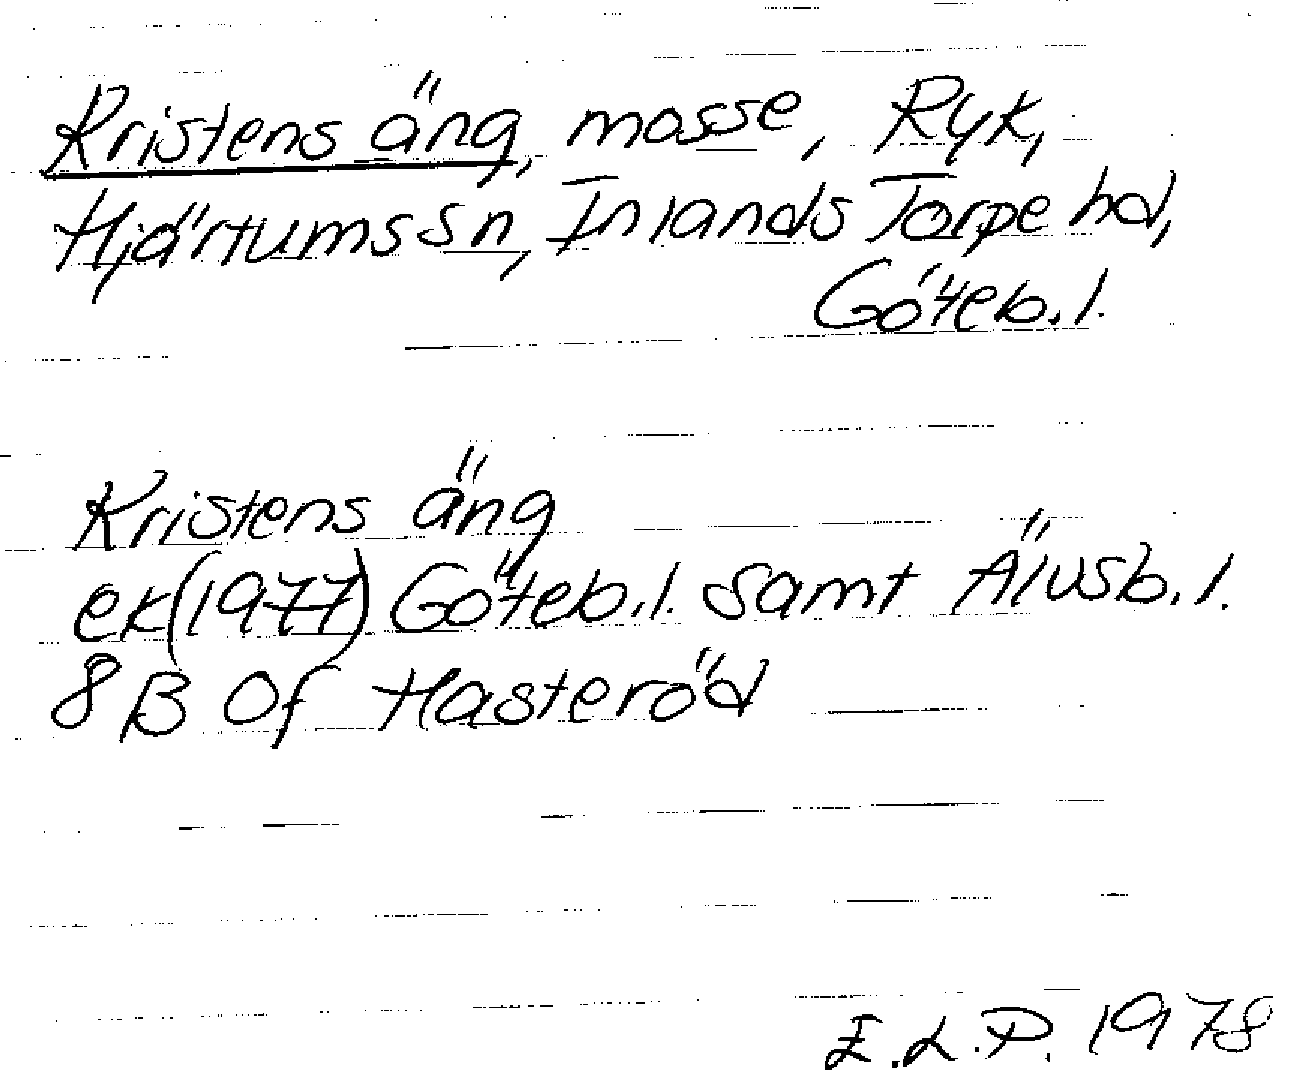 Kristens äng, mosse, Ryk,
Hjärtums sn, Inlands Torpe hd,
Göteb. l.
Kristens äng
ek (1977) Göteb. l. samt Älvsb. l.
8B 0f Hasteröd
E.L.P. 1978